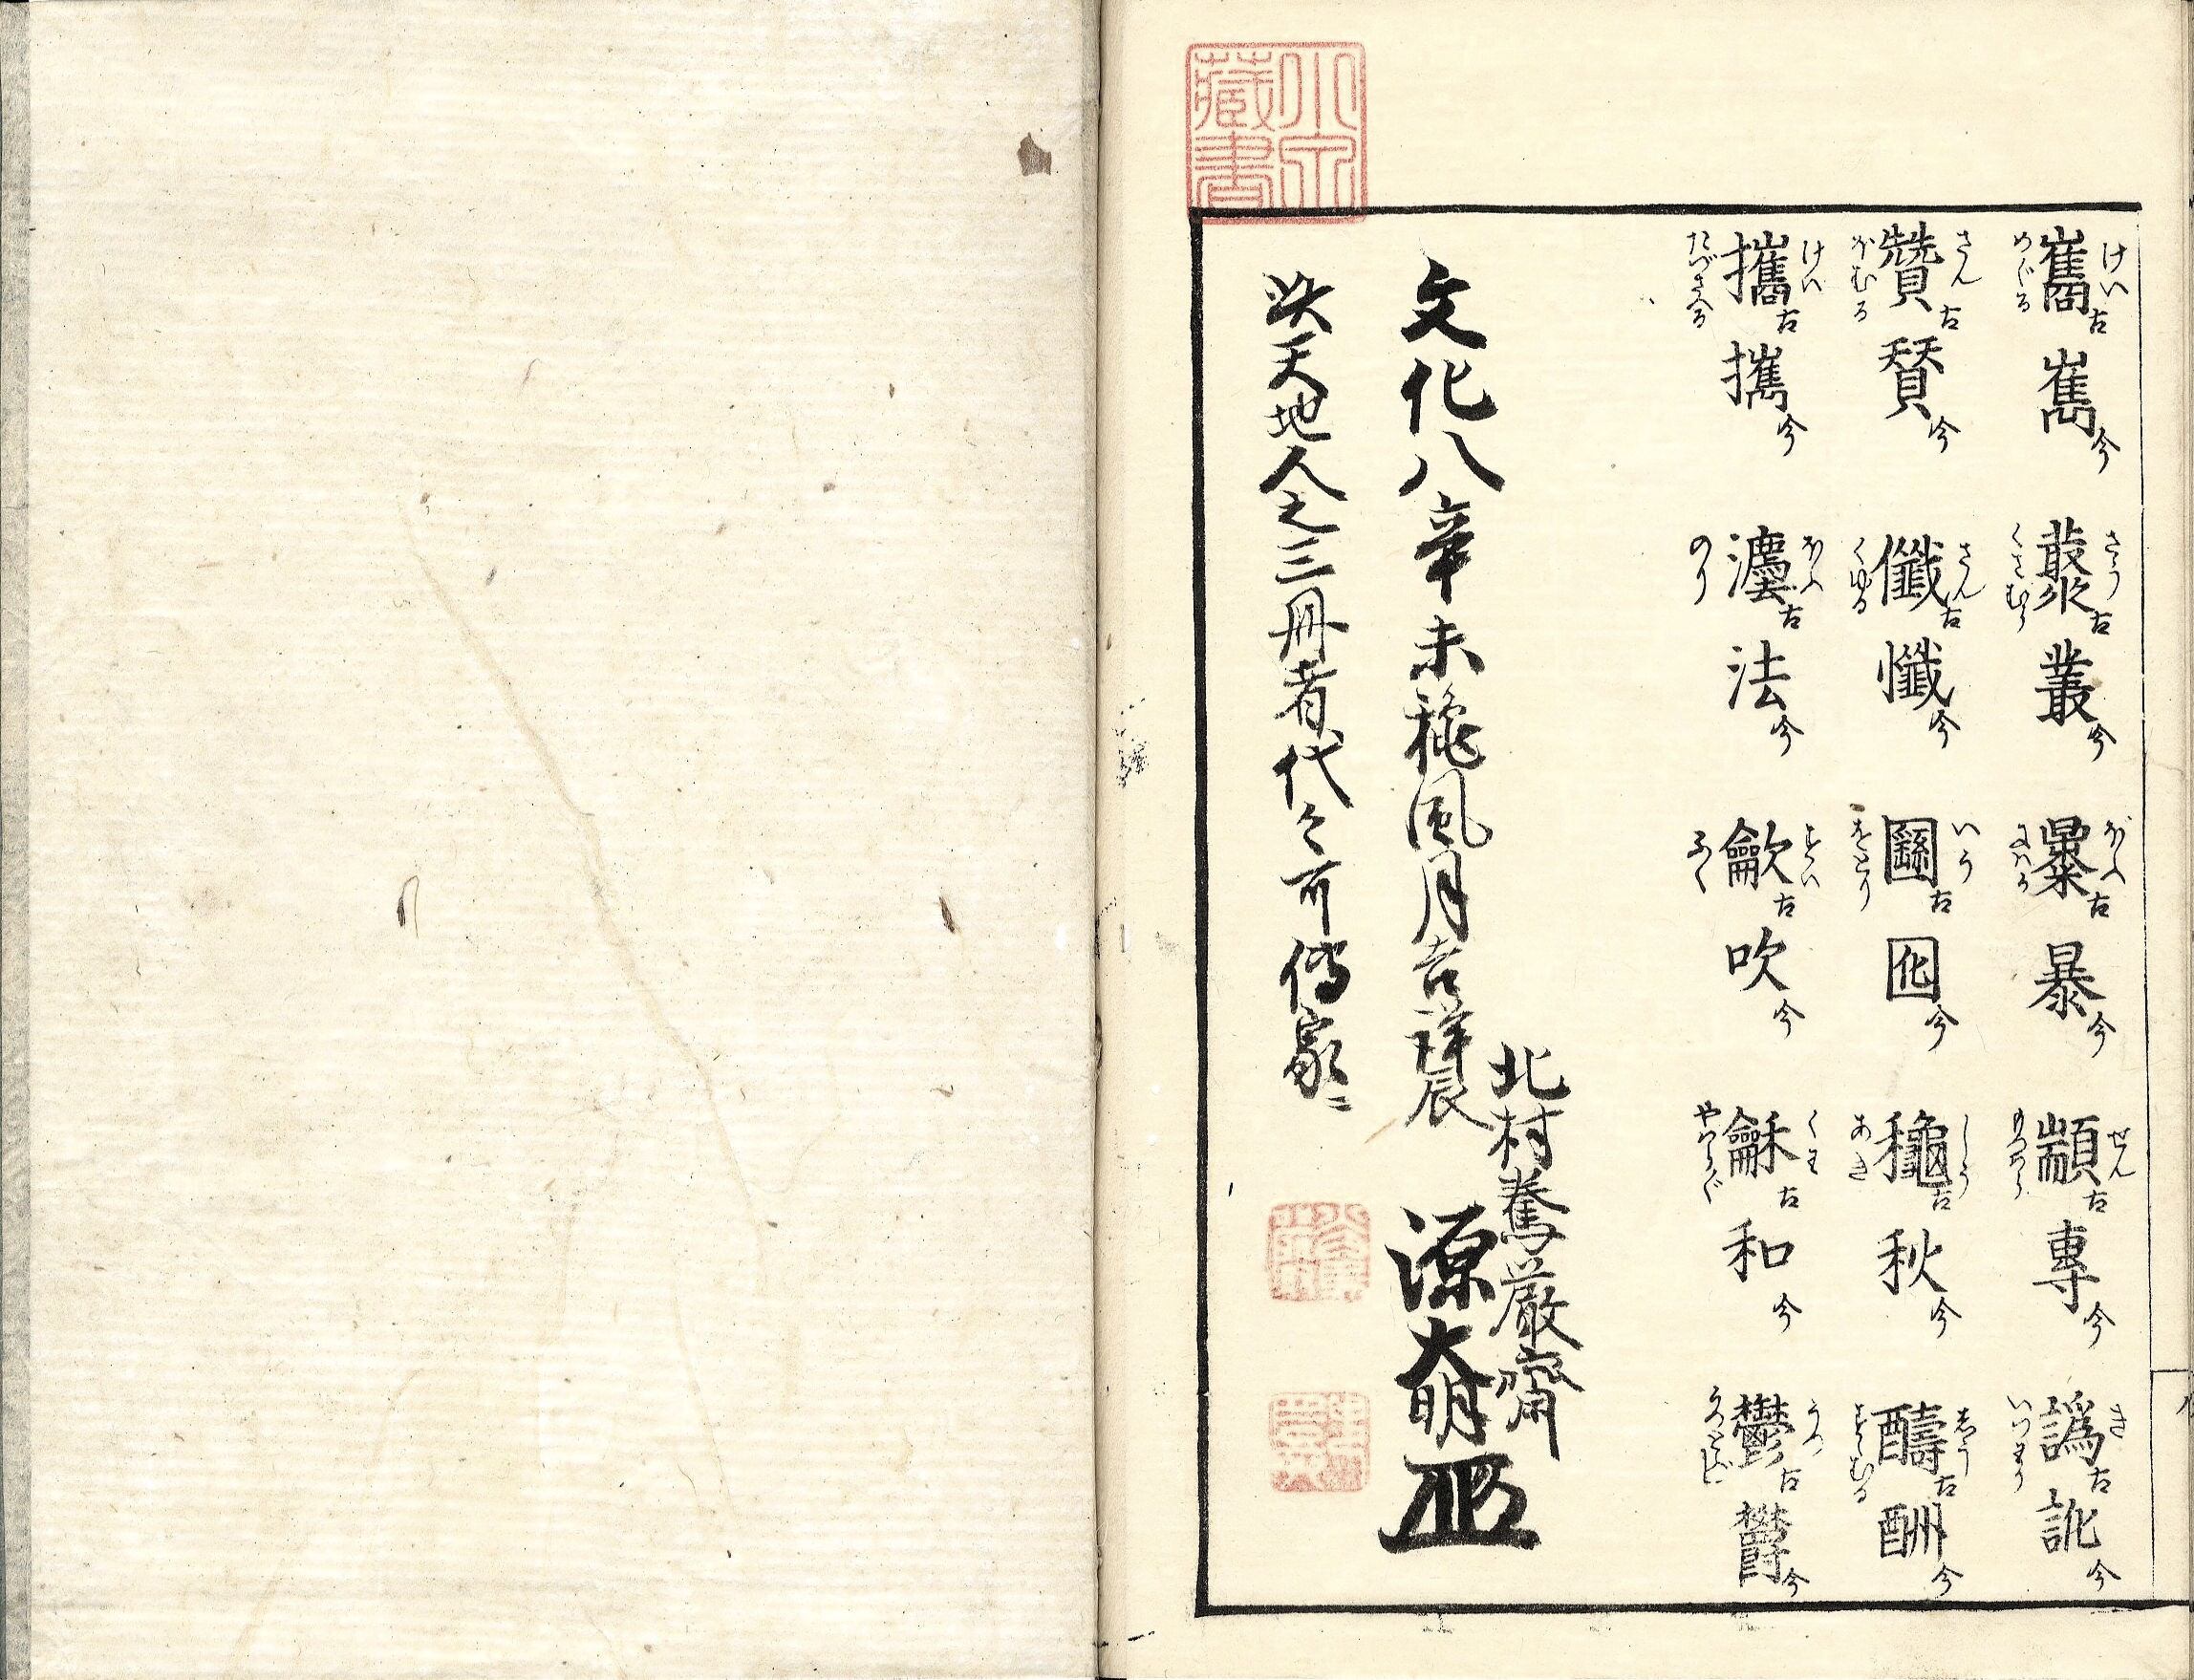 巂 けい めぐる 古 嶲 今 藂 さう くさむら 古 叢 今 曓 ぼふ にはか 古 暴 今 顓 せん もつはら 古 專 今 譌 き いつはり 古 訛 今
贊 さん ほむる 古 賛 今 懺 さん くゆる 古 懴 今 圝 いう をとり 古 囮 今 龝 しう あき 古 秋 今 醻 しう すゝむる 古 酬 今
攜 けい たづさふる 古 携 今 灋 ほふ のり 古 法 今 龡 すい ふく 古 吹 今 龢 くわ やはらぐ 古 和 今 鬱 うつ 古 欝 今
文化八辛未龝風月吉祥辰
北村
嚴齋
源
此天地人之三冊者代々可傳家
小泉藏書